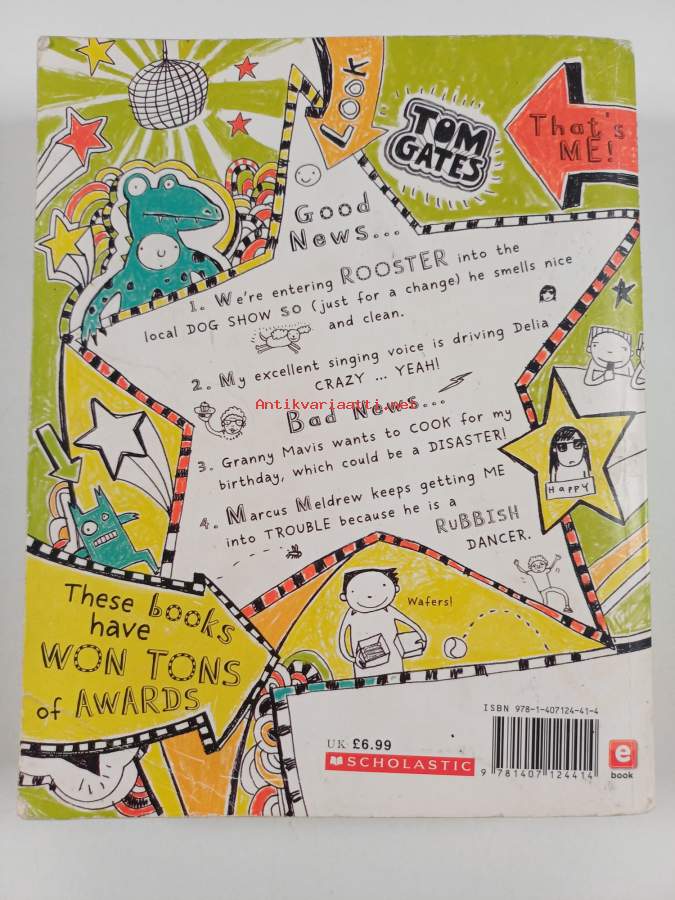 LOOK
TOM
GATES
That's
ME!
Good
News...
1. We're entering ROOSTER into the
local DOG SHOW SO (just for a change) he smells nice
and clean.
2. My excellent singing voice is driving Delia
CRAZY ... YEAH!
Antikvariaatti.net
Bad News...
3. Granny Mavis wants to COOK for my
birthday, which could be a DISASTER!
4. Marcus Meldrew keeps getting ME
into TROUBLE because he is a
RUBBISH
DANCER.
Happy
Wafers!
These books
have
WON TONS
of AWARDS
ISBN 978-1-407124-41-4
UK £6.99
SCHOLASTIC
9 781407 124414
e
book